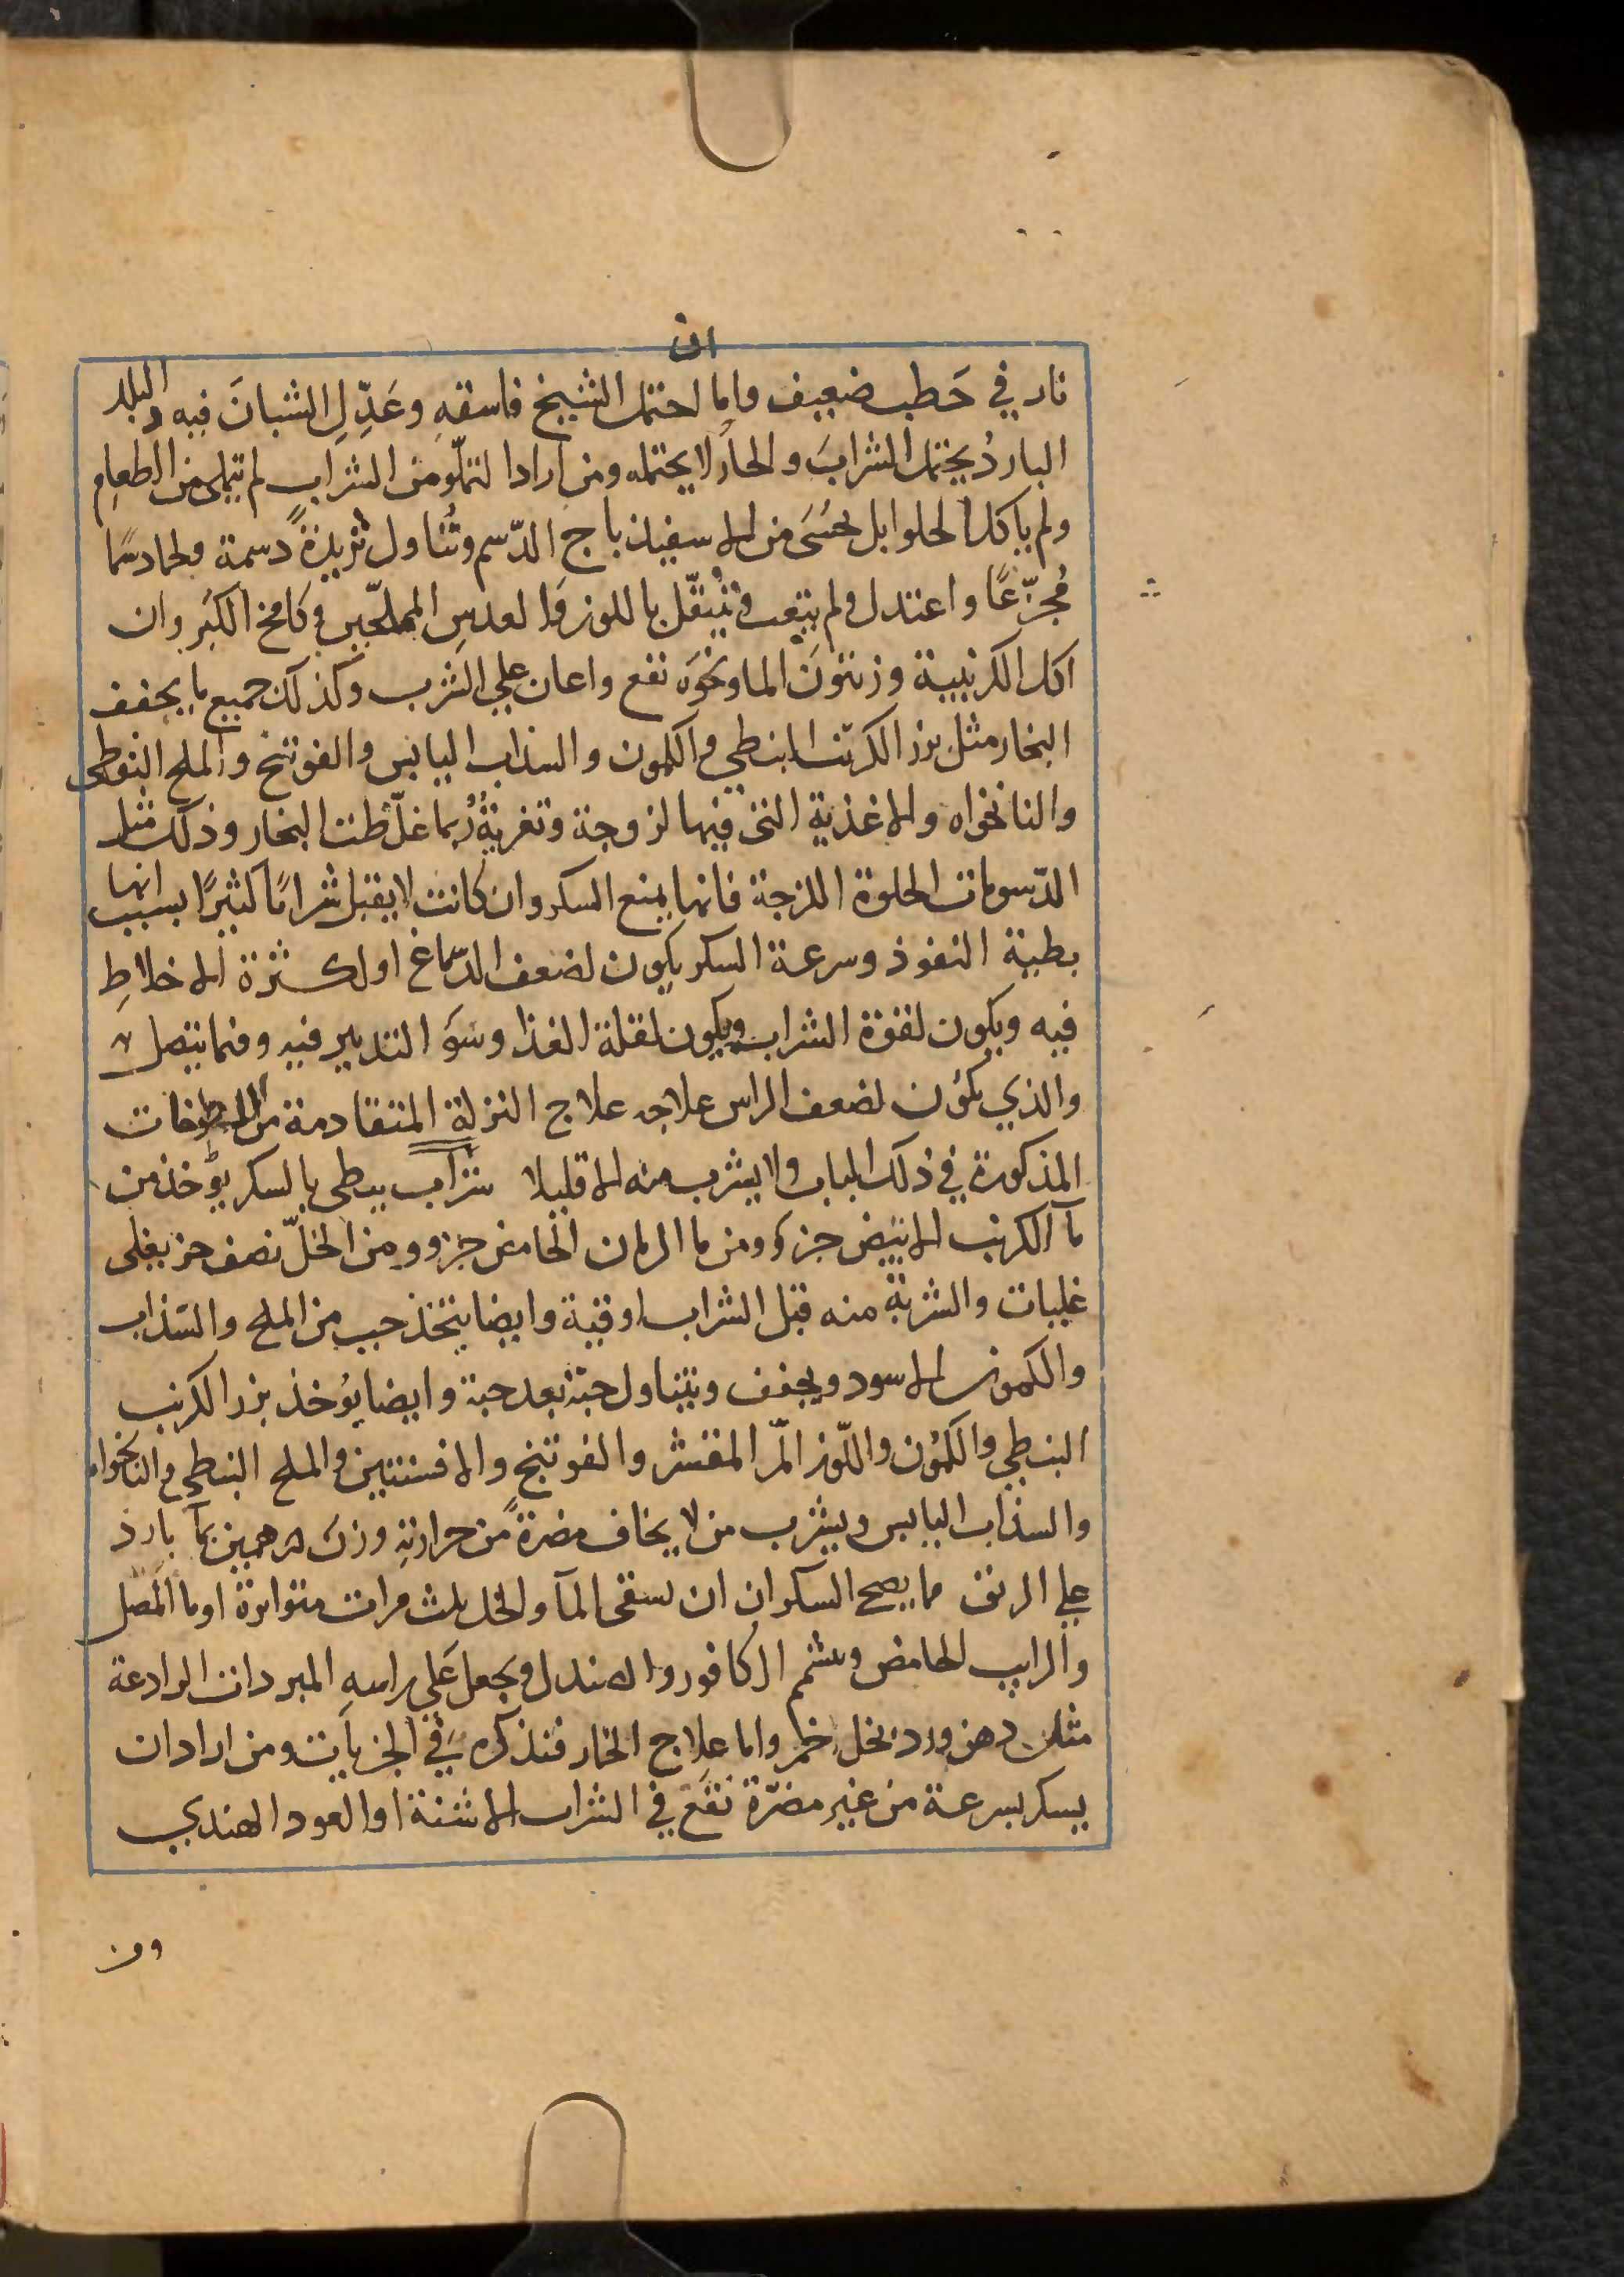 ان
نار في حَطب ضعيف واما احتمل الشيخ فاسقهِ وعَدِّلِ الشبانَ فيه والبلد
الباردُ يحتمل الشرابَ والحارُ لا يحتمله ومن ارادا لتملّو من الشراب لم يتملى من الطعامِ
ولم ياكل الحلوا بل يحُسَى من الاسفيذباج الدّسم وتُناول ثريدةً دسمة ولحما دسمًا
مُجزّعًا واعتدل ولم يتعب وتُنُقّل باللوز والعدسِ المملّحين وكامخ الكَبَر وان
اكل الكرنبية وزيتونَ الما ونحوَه نفع واعان علي الشرب وكذلك جميع ما يجفف
البخار مثل بزر الكرنب النبطي والكمون والسذاب اليابس والفوتنج والملح النفطي
والنانخواه والاغذية التي فيها لزوجة وتغريةٌ رُبما غلّظت البخار وذلك مثل
الدّسومات الحلوة اللزجة فانها يمنع السكر وان كانت لا يقبل شرابًا كثيرًا بسبب انها
بطية النفوذ وسرعة السكر يكون لضعف الدّماغ او لكثرة الاخلاطِ
فيه ويكون لقوة الشراب ويكون لقلة الغذا وسَو التدبير فيه وفما يتصل به
والذي يكون لضعف الراس علاجه علاج النزلة المتقادمة من اللطوخات
المذكورة في ذلك الباب ولا يشرب منه الا قليلا شراب يبطى بالسكر يؤخذ من
مآ الكرنب الابيض جزء ومن ما الرمان الحامض جزو ومن الخلّ نصف جز يغلى
غليات والشربة منه قبل الشراب اوقية وايضا يتخذ حب من الملح والسّذاب
والكمون الاسود ويجفف ويتناول حبّة بعد حبة وايضا يؤخذ بزر الكرنب
النبطي والكمُون واللّوز المّر المقشر والفوتنج والافسنتين والملح النبطي والنانخواه
والسذاب اليابس ويشرب من لا يخاف مضرةً من حرارتهِ وزن درهمين بمآ بارد
علي الريق مما يصح السكران ان يسقى المآ والخل ثلث مرات متواترة او ما المصل
والرايب الحامض ويشم الكافور والصندل ويجعل عَلي راسهِ المبردات الرادعة
مثل دهن ورد بخل خمر واما علاج الخمار فنذكره في الجزيآت ومن اراد ان
يسكر بسرعة من غير مضرّة نقَع في الشراب الاشنة او العود الهندي
ومن